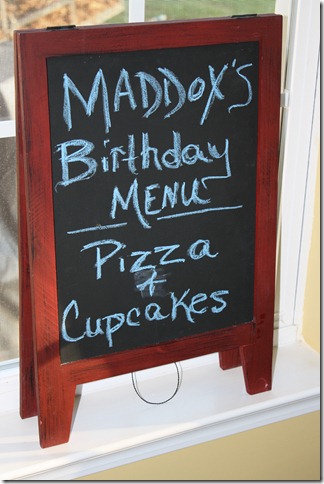 MADDOX'S
Birthday
MENU
Pizza
&
Cupcakes